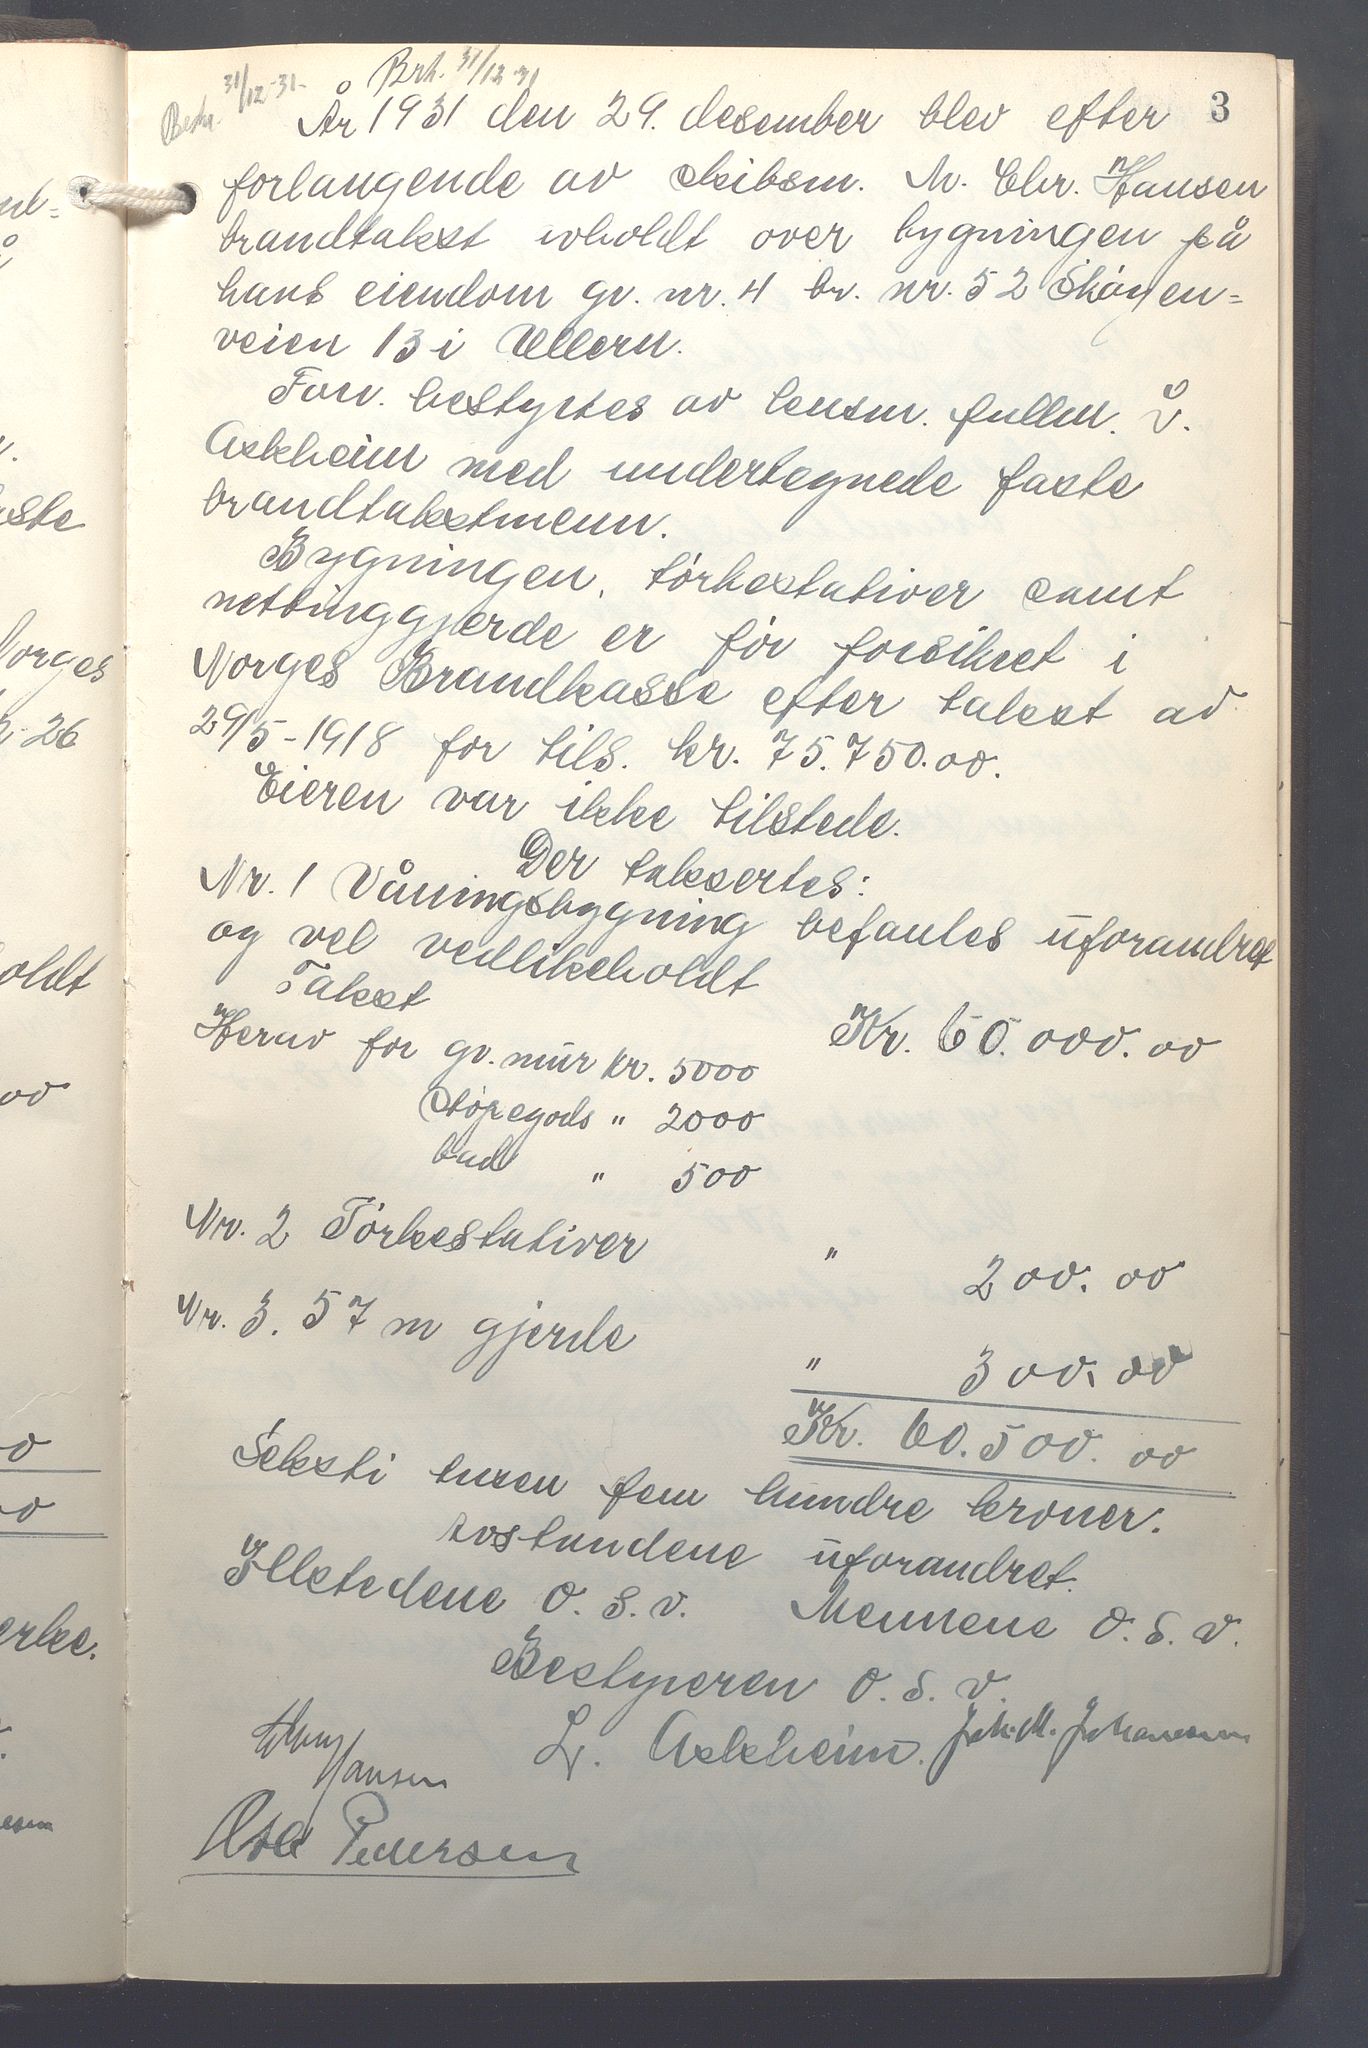 Bekr. 31/12-31.
Brh. 31/12-31
3
År 1931 den 29. desember blev efter
forlangende av skibsm. M. Chr. Hansen
brandtakst avholdt over bygningen på
hans eiendom gr. nr. 4 br. nr. 52 Skøyen-
veien 13 i Ullern.
Forr. bestyrtes av lensm. fullm.
Askheim med undertegnede faste
brandtakstmenn.
Bygningen, tørkestativer samt
nettinggjerde er før forsikret i
Norges Brandkasse efter takst av
29/5-1918 for tils. kr. 75.750.00.
Eieren var ikke tilstede.
Der taksertes:
Nr. 1 Våningsbygning befantes uforandret
og vel vedlikeholdt
Takst Kr. 60.000.00
Herav for gr. mur kr. 5000
støpegods " 2000
bad " 500
Nr. 2 Tørkestativer " 200.00
Nr. 3. 57 m gjerde " 300.00
Kr. 60.500.00
Seksti tusen fem hundre kroner.
Avstandene uforandret.
Ildstedene o.s.v. Mennene o.s.v.
Bestyreren o.s.v.
Hansen
Askheim. Joh. M. Johansen
Pedersen
Norges
-26
oldt
erke.